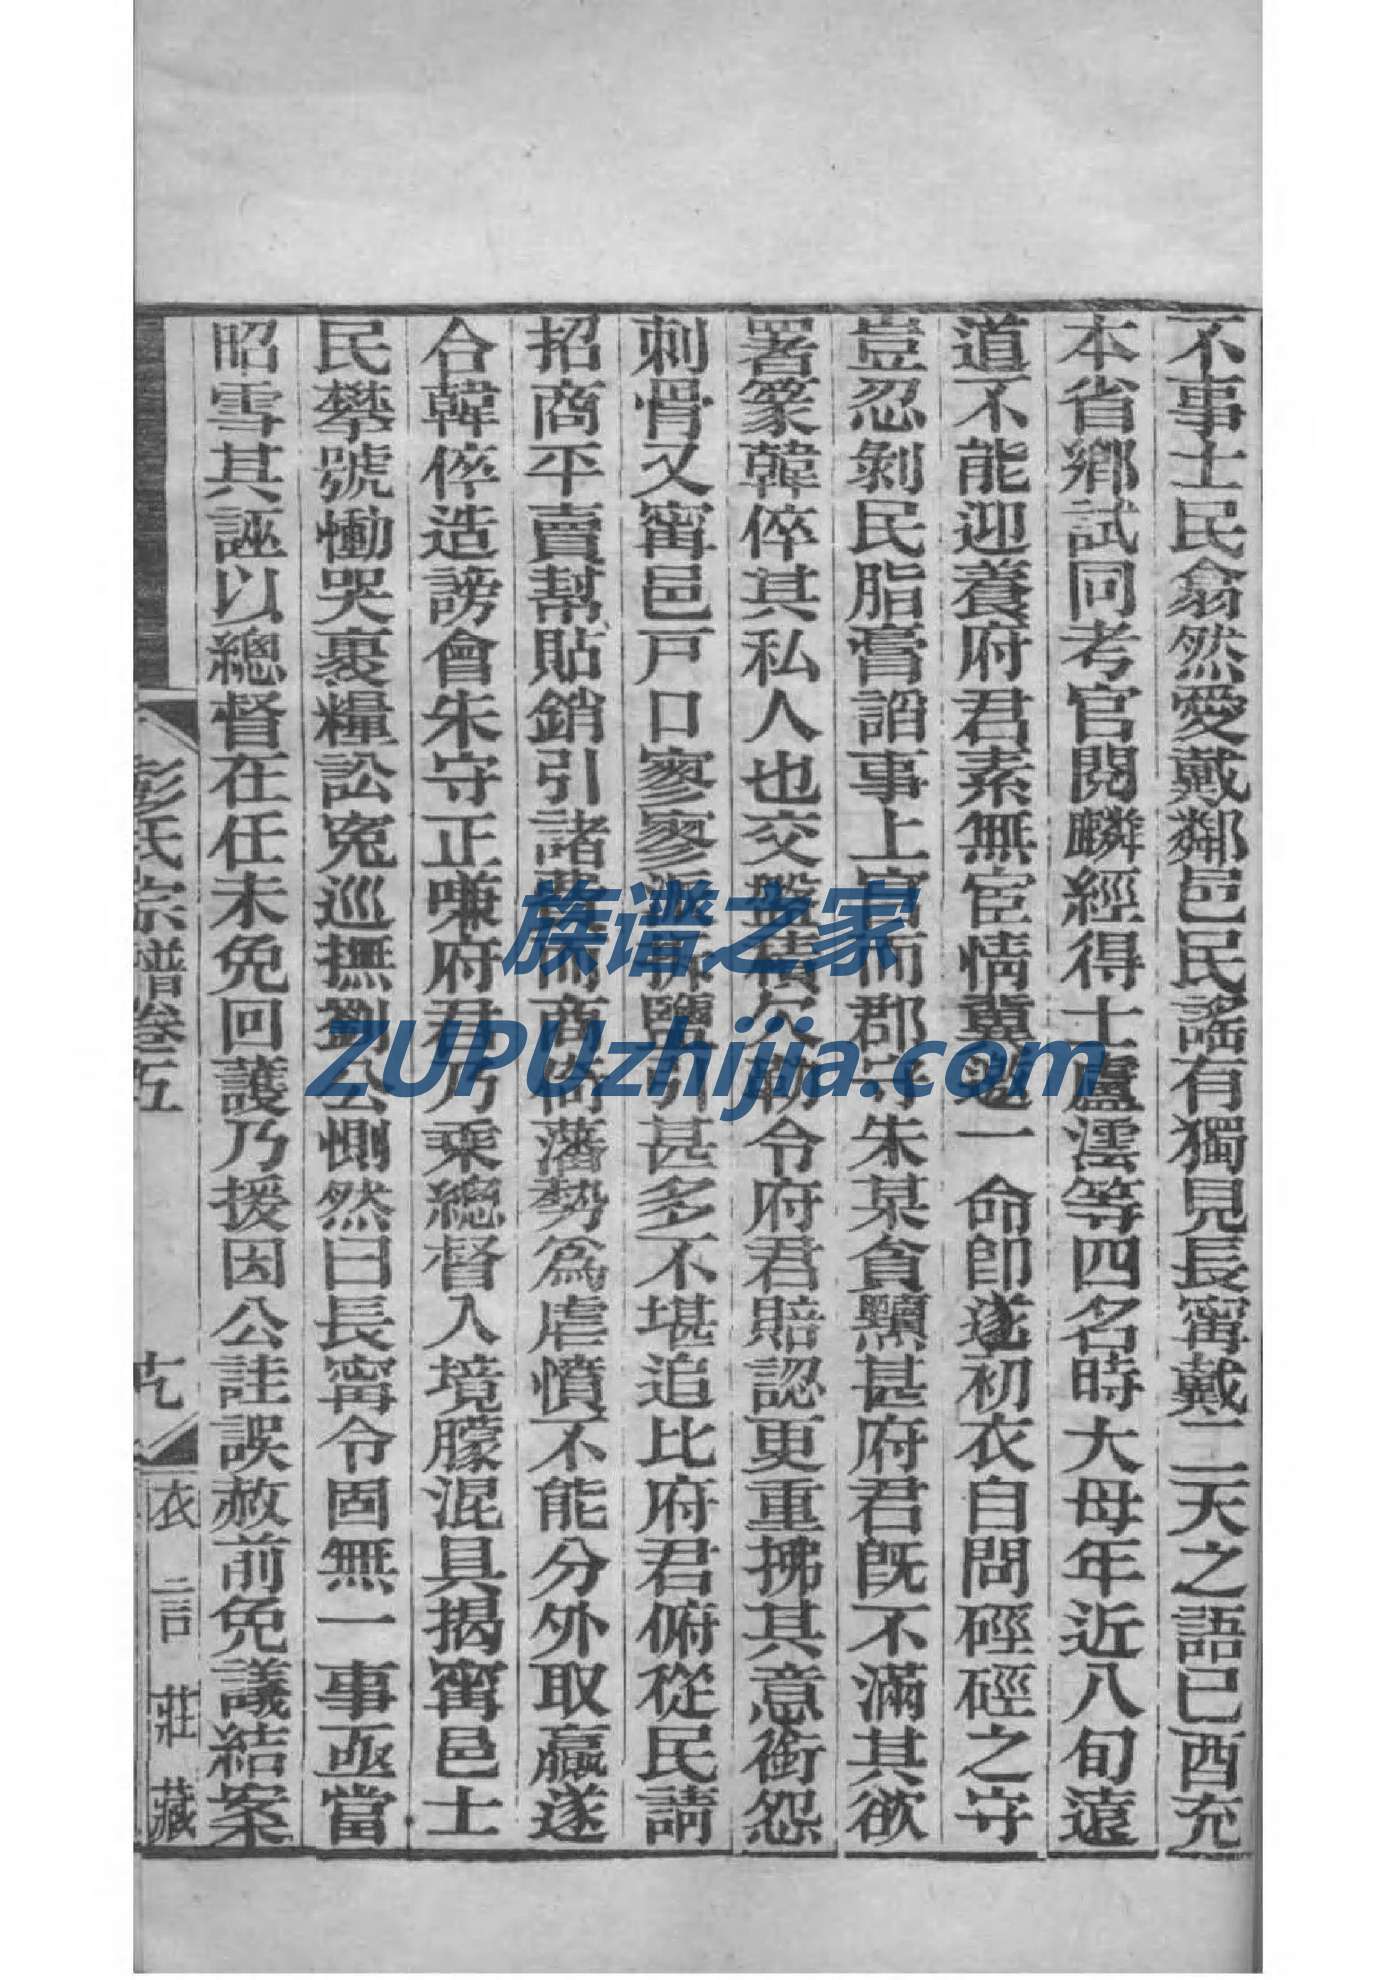 不事士民翕然愛戴鄰邑民謠有獨見長甯戴二天之語已酉充
本省鄉試同考官閱麟經得士盧澐等四名時大母年近八旬遠
道不能迎養府君素無宦情冀邀一命卽遂初衣自問硜硜之守
豈忍剝民脂膏諂事上官而郡守朱某貪黷甚府君旣不滿其欲
署篆韓倅其私人也交盤積欠勒令府君賠認更重拂其意銜怨
刺骨又甯邑戸口寥寥派拆鹽引甚多不堪追比府君俯從民請
招商平賣幫貼銷引諸費而商倚藩勢爲虐憤不能分外取贏遂
合韓倅造謗會朱守正嗛府君乃乘總督入境朦混具揭甯邑士
民攀號慟哭裹糧訟寃巡撫劉公惻然曰長甯令固無一事亟當
昭雪其誣以總督在任未免回護乃援因公註誤赦前免議結案
彭氏宗譜卷五
十九
衣言莊藏
族谱之家
ZUPUzhijia.com